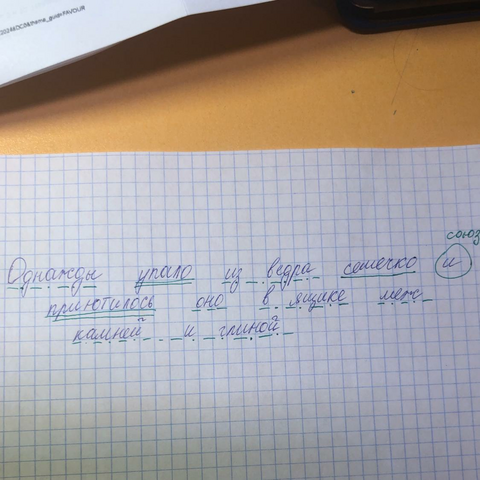 союз
Однажды упало из ведра семечко и
приютилось оно в ящике меж
камней и глиной